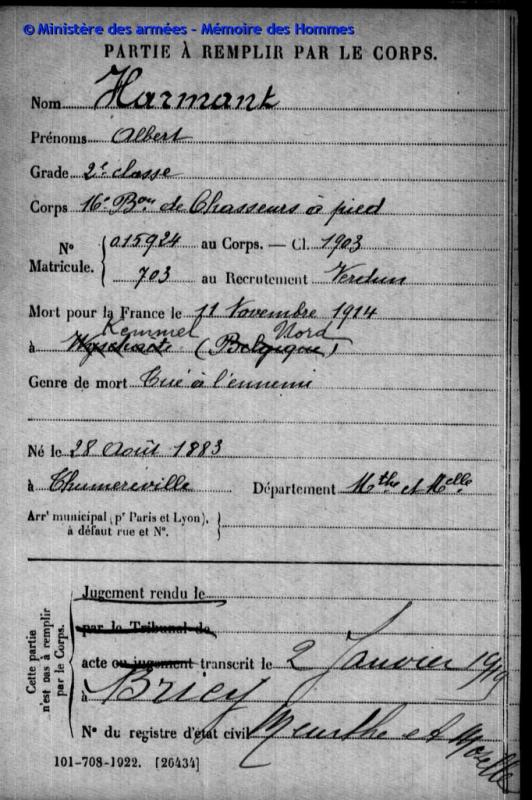 © Ministère des armées - Mémoire des Hommes
PARTIE À REMPLIR PAR LE CORPS.
Nom Harmant
Prénoms Albert
Grade 2e classe
Corps 16e Bon de Chasseurs à pied
No 015924 au Corps. — Cl. 1903
Matricule. 703 au Recrutement Verdun
Mort pour la France le 11 Novembre 1914
Kemmel Nord
à Wytschaete (Belgique)
Genre de mort Tué à l'ennemi
Né le 28 Août 1883
à Thumereville Département Mthe et Melle
Arrt municipal (pr Paris et Lyon),
à défaut rue et No.
Cette partie
n'est pas à remplir
par le Corps.
Jugement rendu le
par le Tribunal de
acte ou jugement transcrit le 2 Janvier 1919
à Briey
No du registre d'état civil Meurthe et Moselle
101-708-1922. [26434]